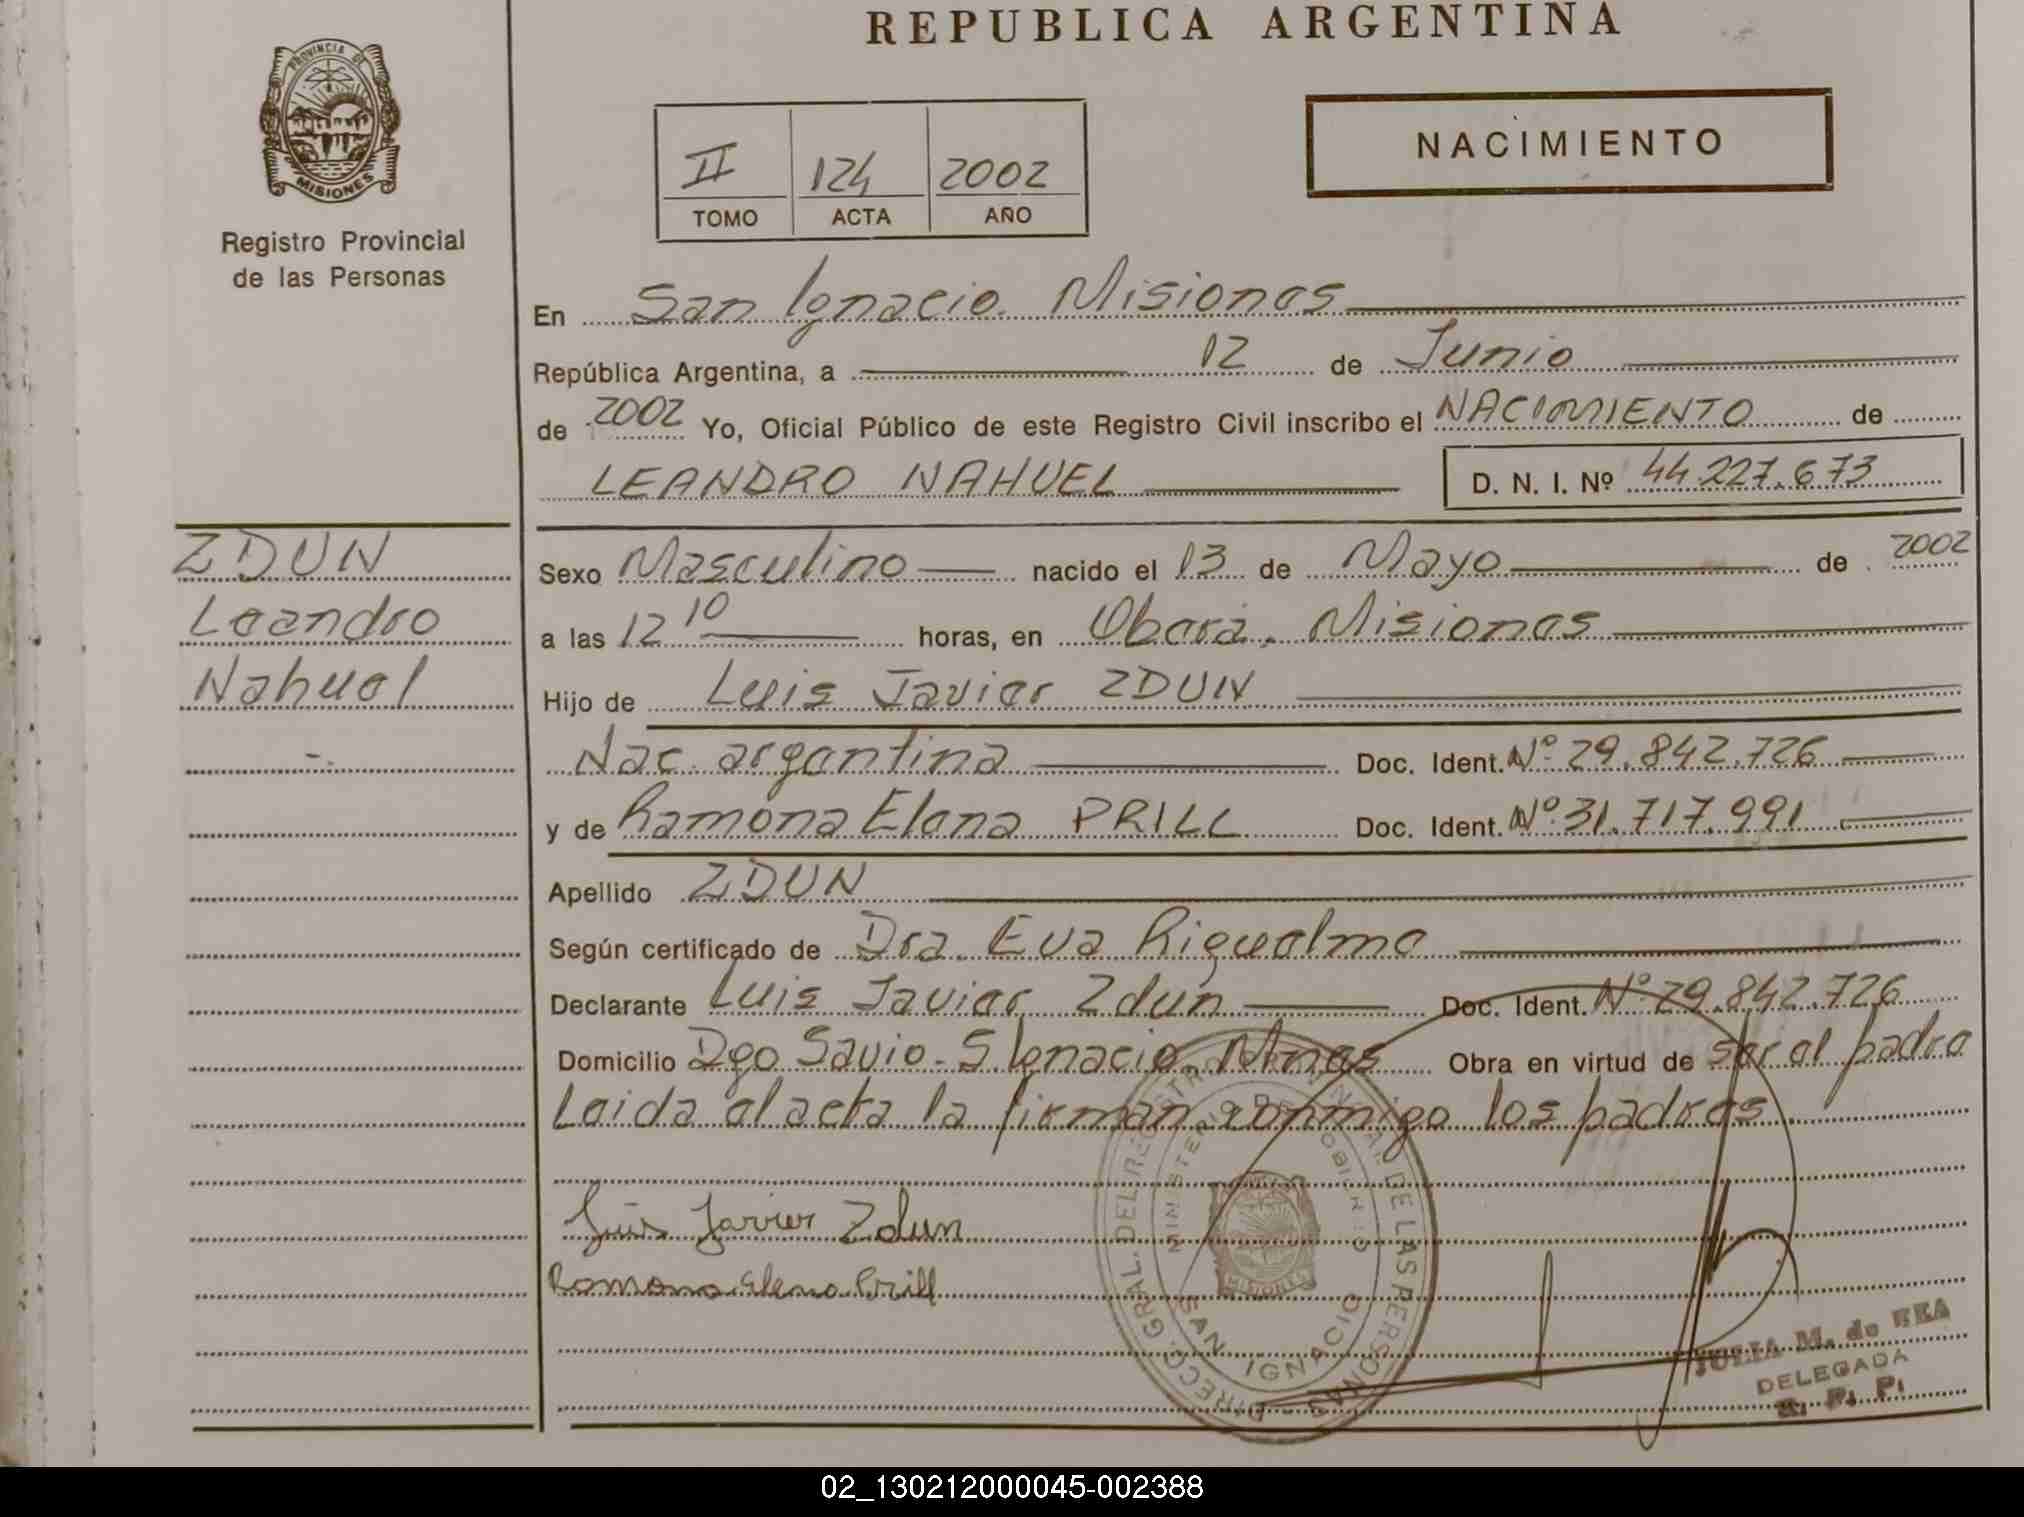 REPUBLICA ARGENTINA
PROVINCIA DE
MISIONES
Registro Provincial
de las Personas
II 124 2002
TOMO ACTA AÑO
NACIMIENTO
En San Ignacio. Misiones
República Argentina, a 12 de Junio
de 2002 Yo, Oficial Público de este Registro Civil inscribo el NACIMIENTO de
LEANDRO NAHUEL D. N. I. Nº 44.227.673
ZDUN
Leandro
Nahuel
Sexo Masculino nacido el 13 de Mayo de 2002
a las 12 10 horas, en Oberá. Misiones
Hijo de Luis Javier ZDUN
Nac. argentina Doc. Ident. Nº 29.842.726
y de Ramona Elena PRILL Doc. Ident. Nº 31.717.991
Apellido ZDUN
Según certificado de Dra. Eva Riquelme
Declarante Luis Javier Zdun Doc. Ident. Nº 29.842.726
Domicilio Dgo Savio - S. Ignacio. Mnes Obra en virtud de ser el padre
Leida el acta la firman conmigo los padres
Luis Javier Zdun
Ramona Elena Prill
DIRECC. GRAL. DEL REGISTRO PROVINCIAL DE LAS PERSONAS
MINISTERIO DE GOBIERNO
MISIONES
SAN IGNACIO
JULIA M. de
DELEGADA
R. P. P.
02_130212000045-002388